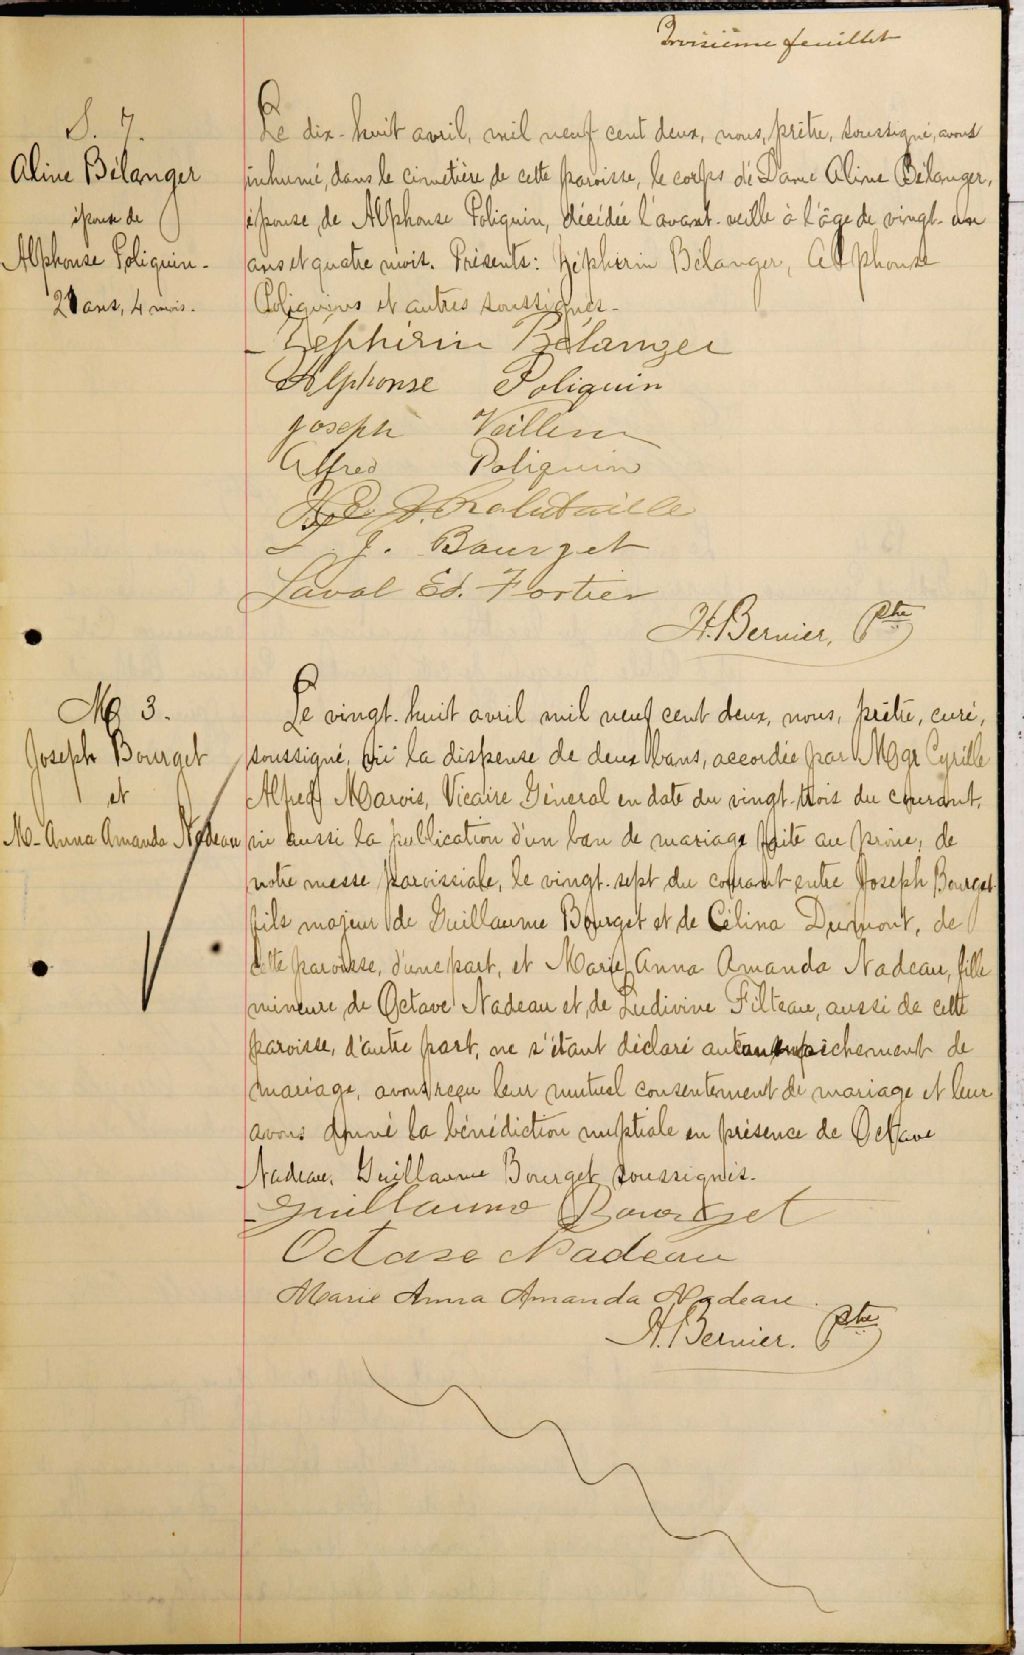 Troisième feuillet
S. 7.
Aline Bélanger
épouse de
Alphonse Poliquin.
21 ans, 4 mois.
Le dix-huit avril, mil neuf cent deux, nous, prêtre, soussigné, avons
inhumé, dans le cimetière de cette paroisse, le corps de Dame Aline Bélanger,
épouse de Alphonse Poliquin, décédée l'avant-veille à l'âge de vingt-un
ans et quatre mois. Présents: Zéphirin Bélanger, Alphonse
Poliquin et autres soussignés.
Zéphirin Bélanger
Alphonse Poliquin
Joseph
Alfred Poliquin
J. Bourget
Laval Ed. Fortier
H. Bernier, Ptre
M 3.
Joseph Bourget
et
M-Anna Amanda Nadeau
Le vingt-huit avril mil neuf cent deux, nous, prêtre, curé,
soussigné, vu la dispense de deux bans, accordée par Mgr Cyrille
Alfred Marois, Vicaire Général en date du vingt-trois du courant,
vu aussi la publication d'un ban de mariage faite au prône, de
notre messe paroissiale, le vingt-sept du courant entre Joseph Bourget
fils majeur de Guillaume Bourget et de Célina Dumont, de
cette paroisse, d'une part, et Marie Anna Amanda Nadeau, fille
mineure de Octave Nadeau et de Ludivine Filteau, aussi de cette
paroisse, d'autre part, ne s'étant déclaré aucun empêchement de
mariage, avons reçu leur mutuel consentement de mariage et leur
avons donné la bénédiction nuptiale en présence de Octave
Nadeau, Guillaume Bourget soussignés.
Guillaume Bourget
Octave Nadeau
Marie Anna Amanda Nadeau.
H. Bernier. Ptre